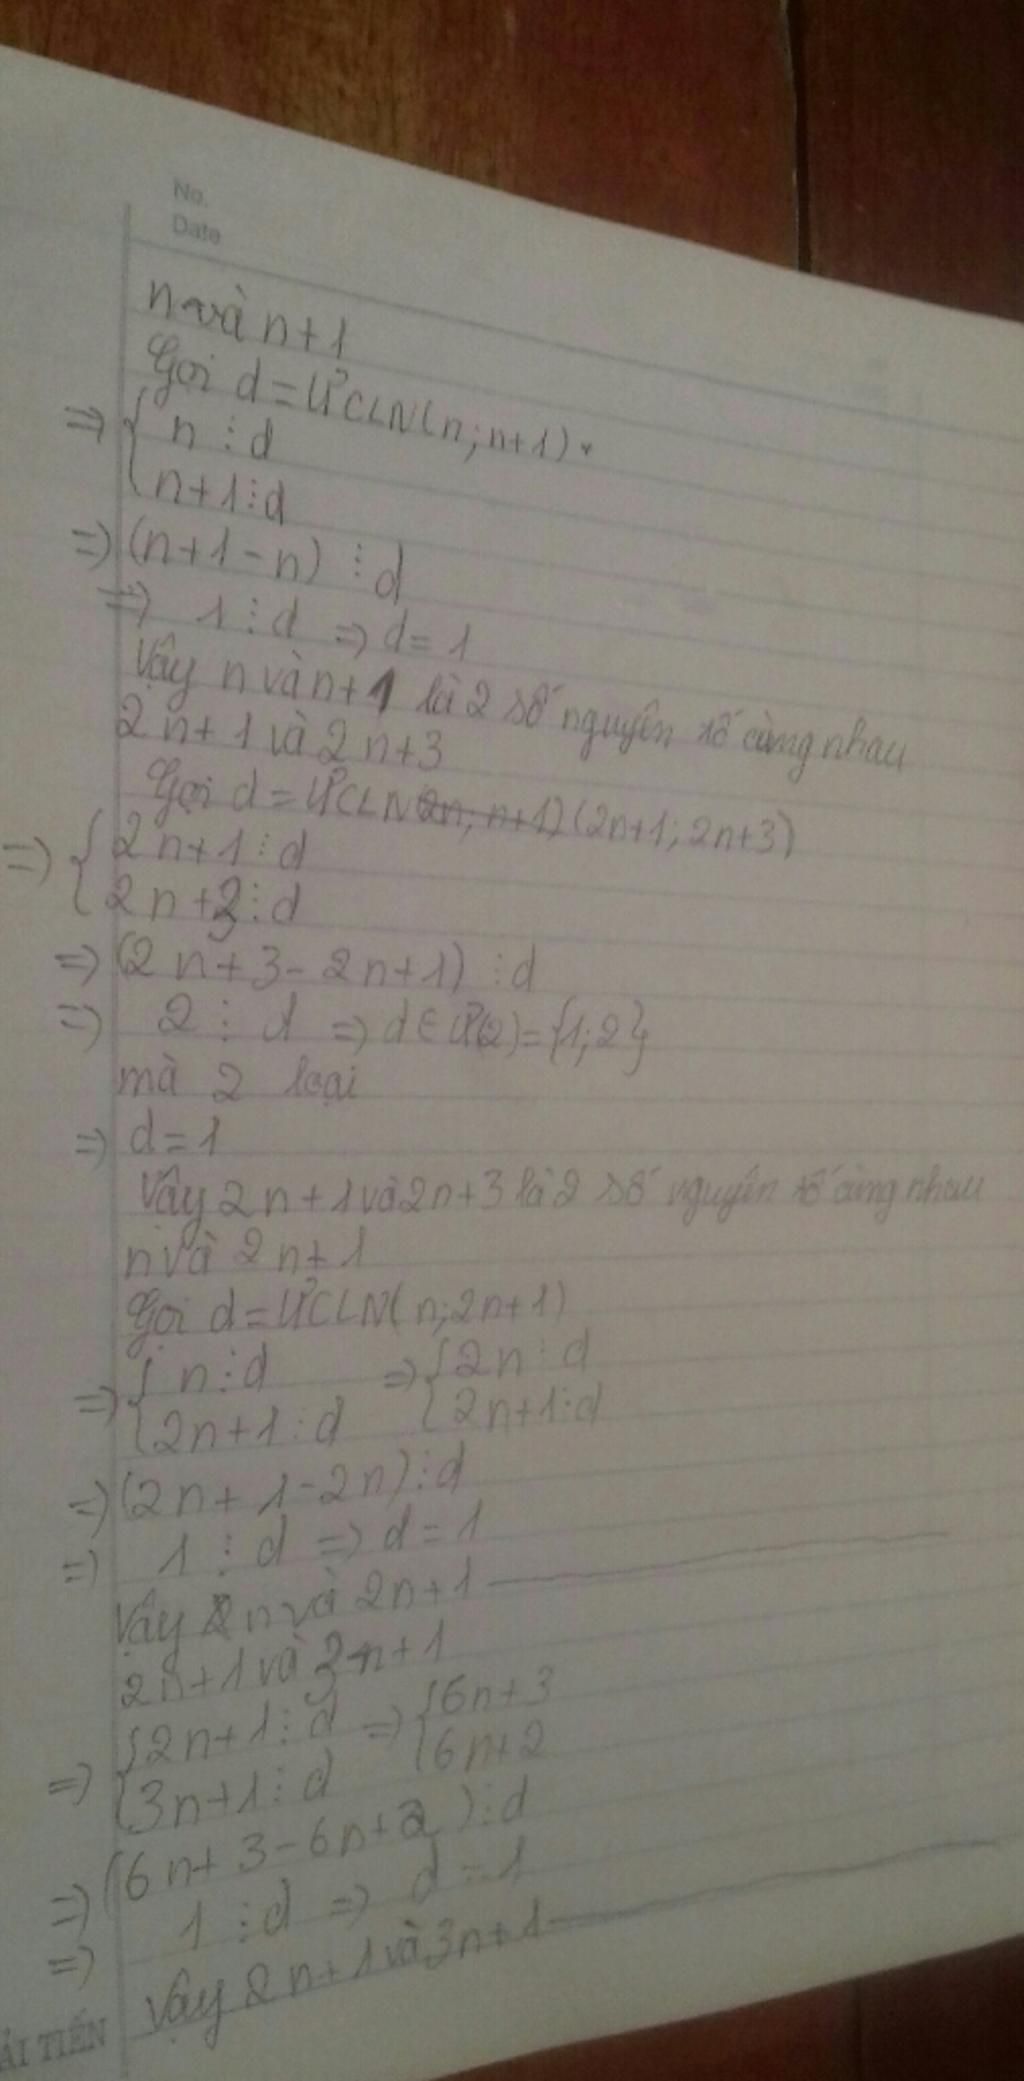 No.
Date
n và n+1
Gọi d = ƯCLN(n; n+1).
=> { n ⋮ d
n+1 ⋮ d
=> (n+1-n) ⋮ d
=> 1 ⋮ d => d = 1
Vậy n và n+1 là 2 số nguyên tố cùng nhau
2n+1 và 2n+3
Gọi d = ƯCLN (2n; n+1) (2n+1; 2n+3)
=> { 2n+1 ⋮ d
2n+3 ⋮ d
=> (2n+3-2n+1) ⋮ d
=> 2 ⋮ d => d ∈ Ư(2) = {1; 2}
mà 2 loại
=> d = 1
Vậy 2n+1 và 2n+3 là 2 số nguyên tố cùng nhau
n và 2n+1
Gọi d = ƯCLN(n; 2n+1)
=> { n ⋮ d => { 2n ⋮ d
2n+1 ⋮ d 2n+1 ⋮ d
=> (2n+1-2n) ⋮ d
=> 1 ⋮ d => d = 1
Vậy n và 2n+1
2n+1 và 3n+1
=> { 2n+1 ⋮ d => { 6n+3
3n+1 ⋮ d 6n+2
=> (6n+3-6n+2) ⋮ d
=> 1 ⋮ d => d = 1
Vậy 2n+1 và 3n+1
ẢI TIẾN